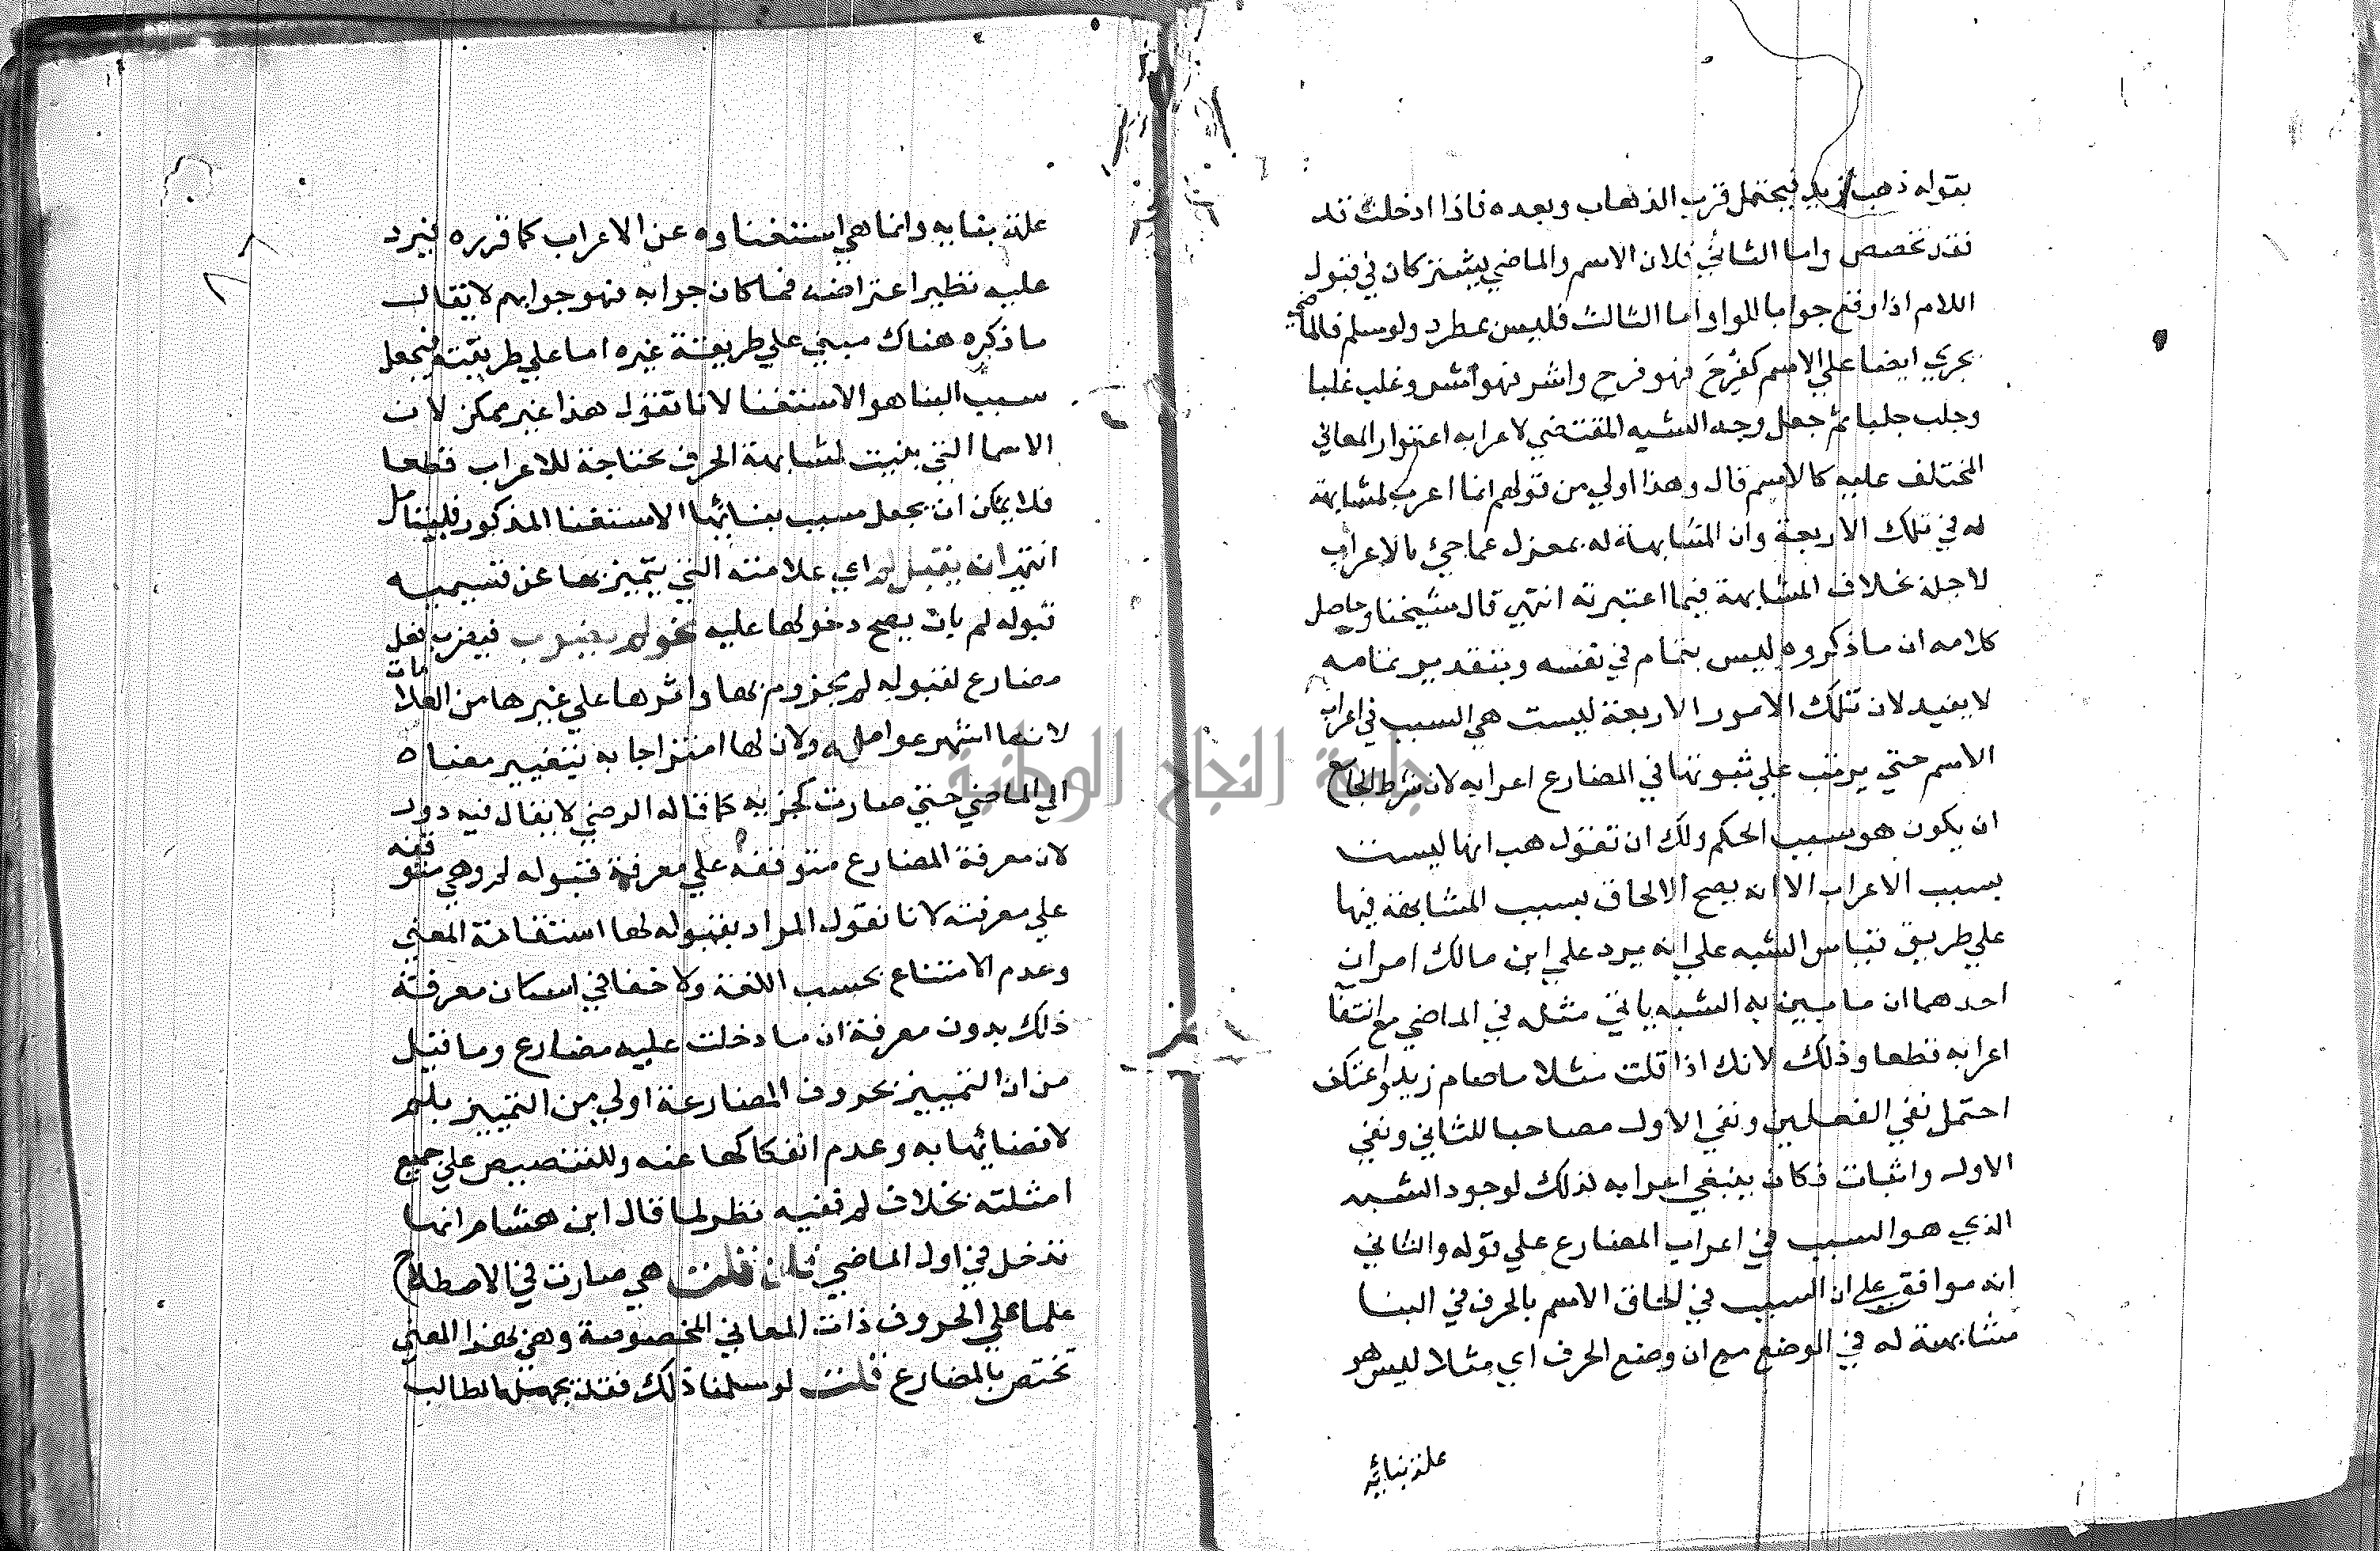 بقوله ذهب زيد فيحتمل قرب الذهاب وبعده فاذا ادخلت قد
فقد تخصص واما الثاني فلان الاسم والماضي يشتركان في قبول
اللام اذا وقع جوابا للو واما الثالث فليس بمطرد ولو سلم فالماضي
يجري ايضا علي الاسم كفَرِحَ فهو فرح واشر فهو أشر وغلب غلبا
وجلب جلبا ثم جعل وجه الشبه المقتضي لاعرابه اعتوار المعاني
المختلف عليه كالاسم قال وهذا اولي من قولهم انما اعرب لمشابهة
له في تلك الاربعة وان المشابهة له بمعزل عما جئ بالاعراب
لاجله بخلاف المشابهة فيما اعتبرته انتهي قال شيخنا وحاصل
كلامه ان ما ذكروه ليس بتمام في نفسه وبتقدير تمامه
لا يفيد لان تلك الامور الاربعة ليست هي السبب في اعراب
الاسم حتي يرتب علي ثبوتها في المضارع اعرابه لان شرط الجامع
ان يكون هو سبب الحكم ولك ان تقول هب انها ليست
بسبب الاعراب الا انه يصح الالحاق بسبب المشابهة فيها
علي طريق قياس الشبه علي انه يرد علي ابن مالك امران
احدهما ان ما بين به الشبه ياتي مثله في الماضي مع انتفا
اعرابه قطعا وذلك لانك اذا قلت مثلا ما صام زيد واعتكف
احتمل نفي الفعلين ونفي الاول مصاحبا للثاني ونفي
الاول واثبات فكان ينبغي اعرابه لذلك لوجود الشبه
الذي هو السبب في اعراب المضارع علي قوله والثاني
انه موافق علي ان السبب في لحاق الاسم بالحرف في البنا
مشابهة له في الوضع مع ان وضع الحرف اي مثلا ليس هو
علة بنائه
علة بنايه وانما هي استغناوه عن الاعراب كما قرره فيرد
عليه نظير اعتراضه فما كان جوابه فهو جوابهم لا يقال
ما ذكره هناك مبني علي طريقة غيره اما علي طريقته فيجعل
سبب البنا هو الاستغنا لانا نقول هذا غير ممكن لان
الاسما التي بنيت لشابهة الحرف محتاجة للاعراب قطعا
فلا يمكن ان يجعل سبب بنائها الاستغنا المذكور فليتامل
انتهي ان يقبل لم اي علامته التي يتميز بها عن قسيميه
قبوله لم بان يصح دخولها عليه نحو لم يضرب فيضرب فعل
مضارع لقبوله لم يجزوم بها واثرها علي غيرها من العلامات
لانها اشهر عوامله ولان لها امتزاجا به بتغيير معناه
الي الماضي حتي صارت كجزيه كما قاله الرضي لا يقال فيه دور
لان معرفة المضارع متوقفه علي معرفة قبوله لم وهي متوقفه
علي معرفته لانا نقول المراد بقبوله لها استقامة المعني
وعدم الامتناع بحسب اللغة ولا خفا في امكان معرفة
ذلك بدون معرفة ان ما دخلت عليه مضارع وما قيل
من ان التمييز بحروف المضارعة اولي من التمييز بلم
لاتصالها به وعدم انفكاكها عنه وللتنصيص علي جميع
امثلته بخلاف لم ففيه نظر لما قال ابن هشام انها
تدخل في اول الماضي فان قلت هي صارت في الاصطلاح
علما علي الحروف ذات المعاني المخصوصة وهي بهذا المعني
تختص بالمضارع قلت لو سلمنا ذلك فقد يجهل الطالب
جامعة النجاح الوطنية